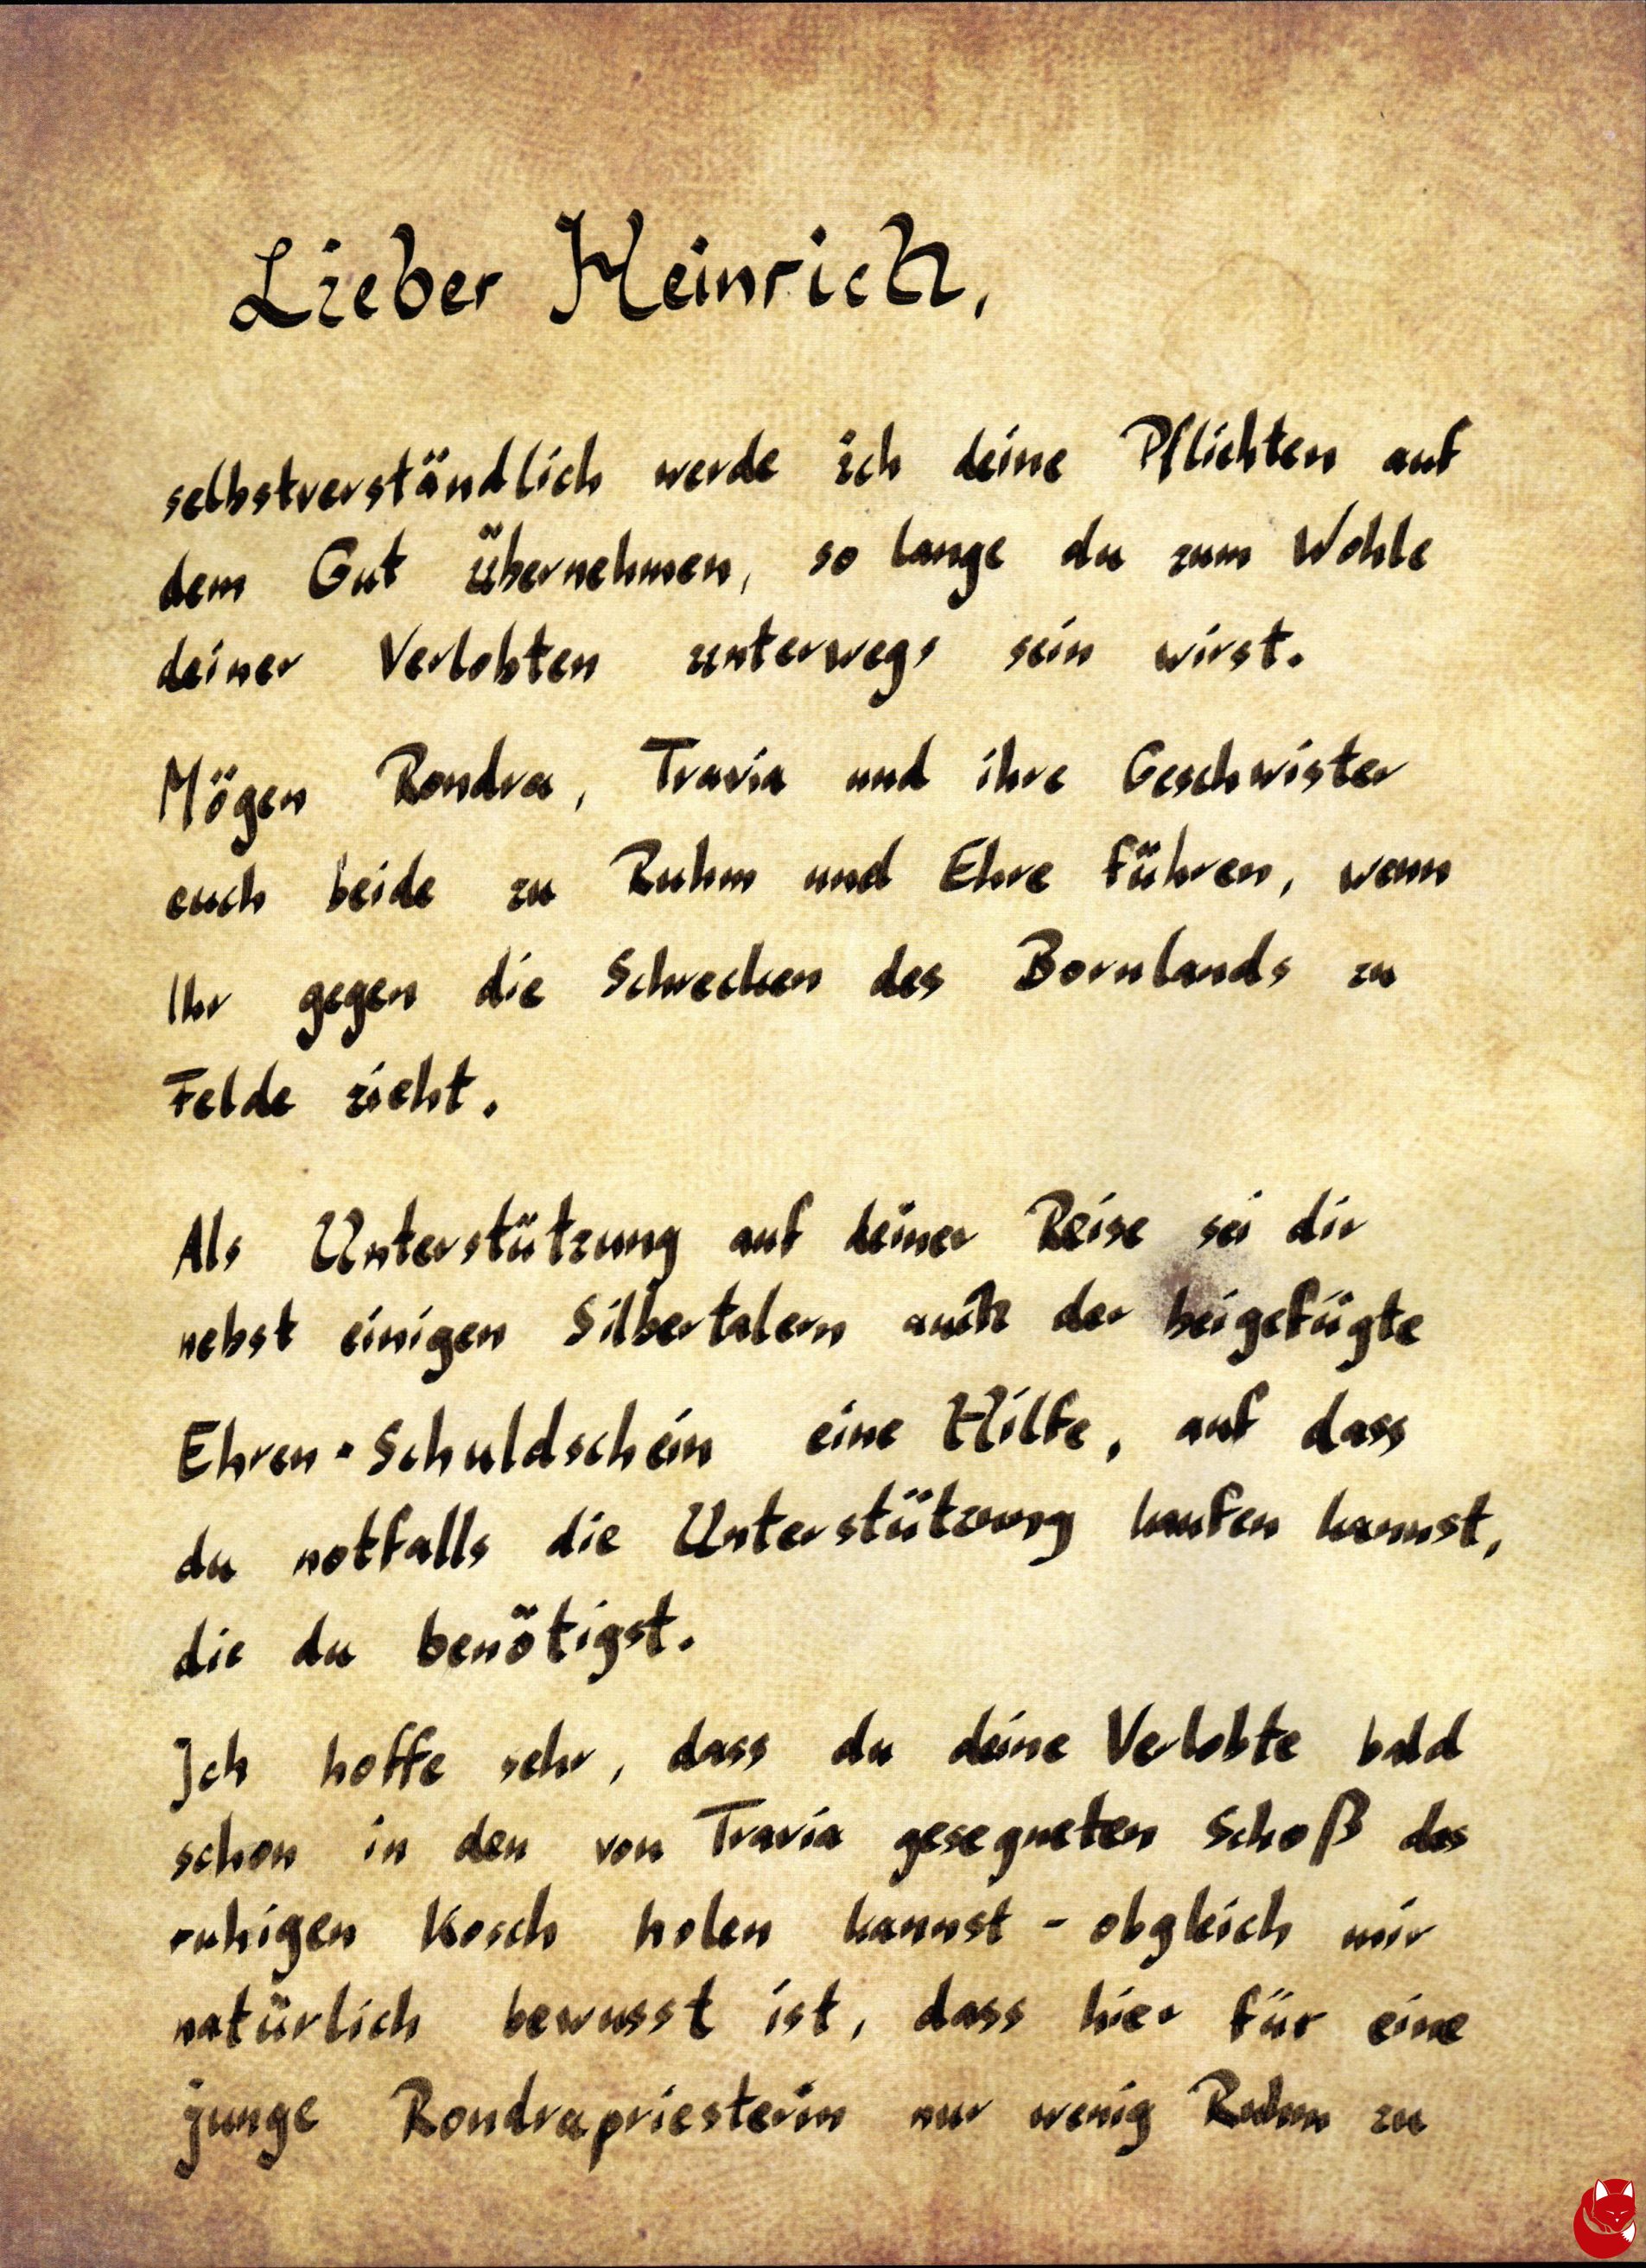 Lieber Heinrich,
selbstverständlich werde ich deine Pflichten auf
dem Gut übernehmen, so lange du zum Wohle
deiner Verlobten unterwegs sein wirst.
Mögen Rondra, Travia und ihre Geschwister
euch beide zu Ruhm und Ehre führen, wenn
Ihr gegen die Schrecken des Bornlands zu
Felde zieht.
Als Unterstützung auf deiner Reise sei dir
nebst einigen Silbertalern auch der beigefügte
Ehren-Schuldschein eine Hilfe, auf dass
du notfalls die Unterstützung kaufen kannst,
die du benötigst.
Ich hoffe sehr, dass du deine Verlobte bald
schon in den von Travia gesegneten Schoß des
ruhigen Kosch holen kannst - obgleich mir
natürlich bewusst ist, dass hier für eine
junge Rondrapriesterin nur wenig Ruhm zu